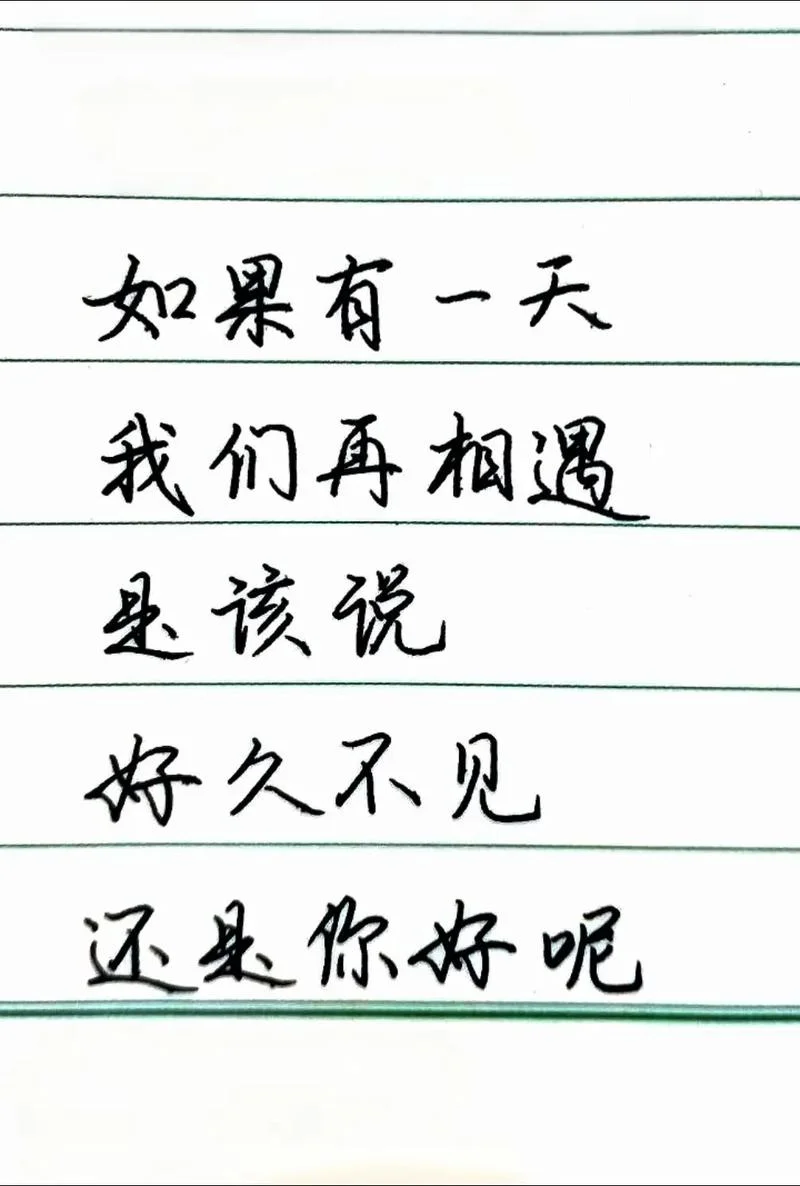 如果有一天
我们再相遇
是该说
好久不见
还是你好呢